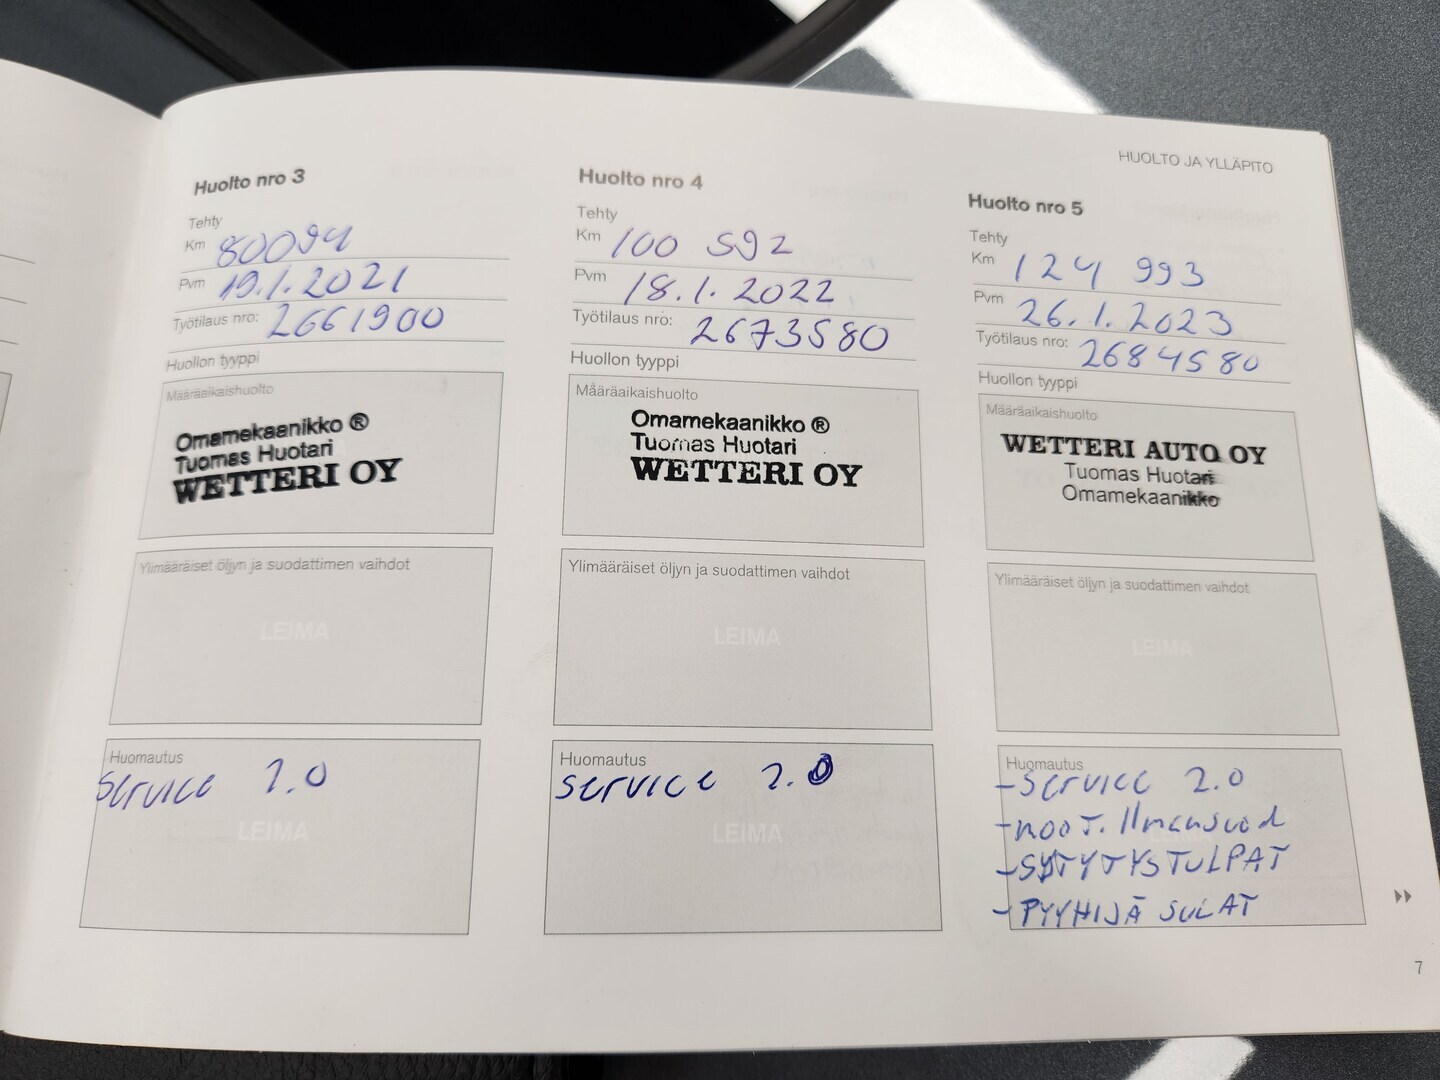 HUOLTO JA YLLÄPITO
Huolto nro 3
Tehty
Km 80094
Pvm 19.1.2021
Työtilaus nro: 2661900
Huollon tyyppi
Määräaikaishuolto
Omamekaanikko ®
Tuomas Huotari
WETTERI OY
Ylimääräiset öljyn ja suodattimen vaihdot
LEIMA
Huomautus
service 2.0
LEIMA
Huolto nro 4
Tehty
Km 100 592
Pvm 18.1.2022
Työtilaus nro: 2673580
Huollon tyyppi
Määräaikaishuolto
Omamekaanikko ®
Tuomas Huotari
WETTERI OY
Ylimääräiset öljyn ja suodattimen vaihdot
LEIMA
Huomautus
service 2.0
LEIMA
Huolto nro 5
Tehty
Km 124 993
Pvm 26.1.2023
Työtilaus nro: 2684580
Huollon tyyppi
Määräaikaishuolto
WETTERI AUTO OY
Tuomas Huotari
Omamekaanikko
Ylimääräiset öljyn ja suodattimen vaihdot
LEIMA
Huomautus
-service 2.0
-moot. Ilmansuod
-SYTYTYSTULPAT
-PYYHIJÄ SULAT
7